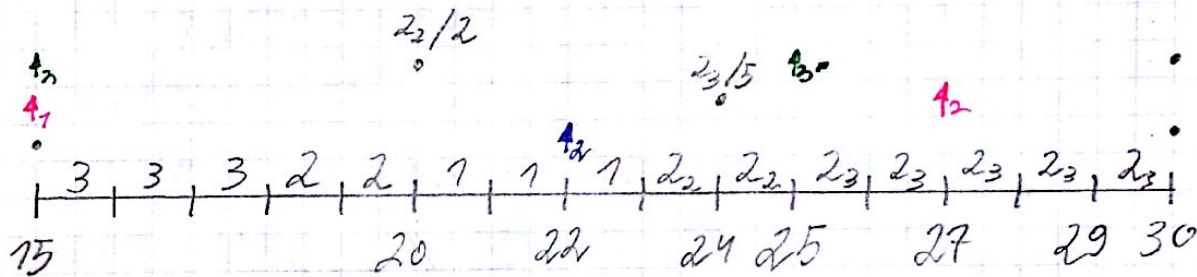 2₂/2
4₂ 2₃/5 4₃
4₁ 4₂
4₂
3 3 3 2 2 1 1 1 2₂ 2₂ 2₃ 2₃ 2₃ 2₃ 2₃
15 20 22 24 25 27 29 30